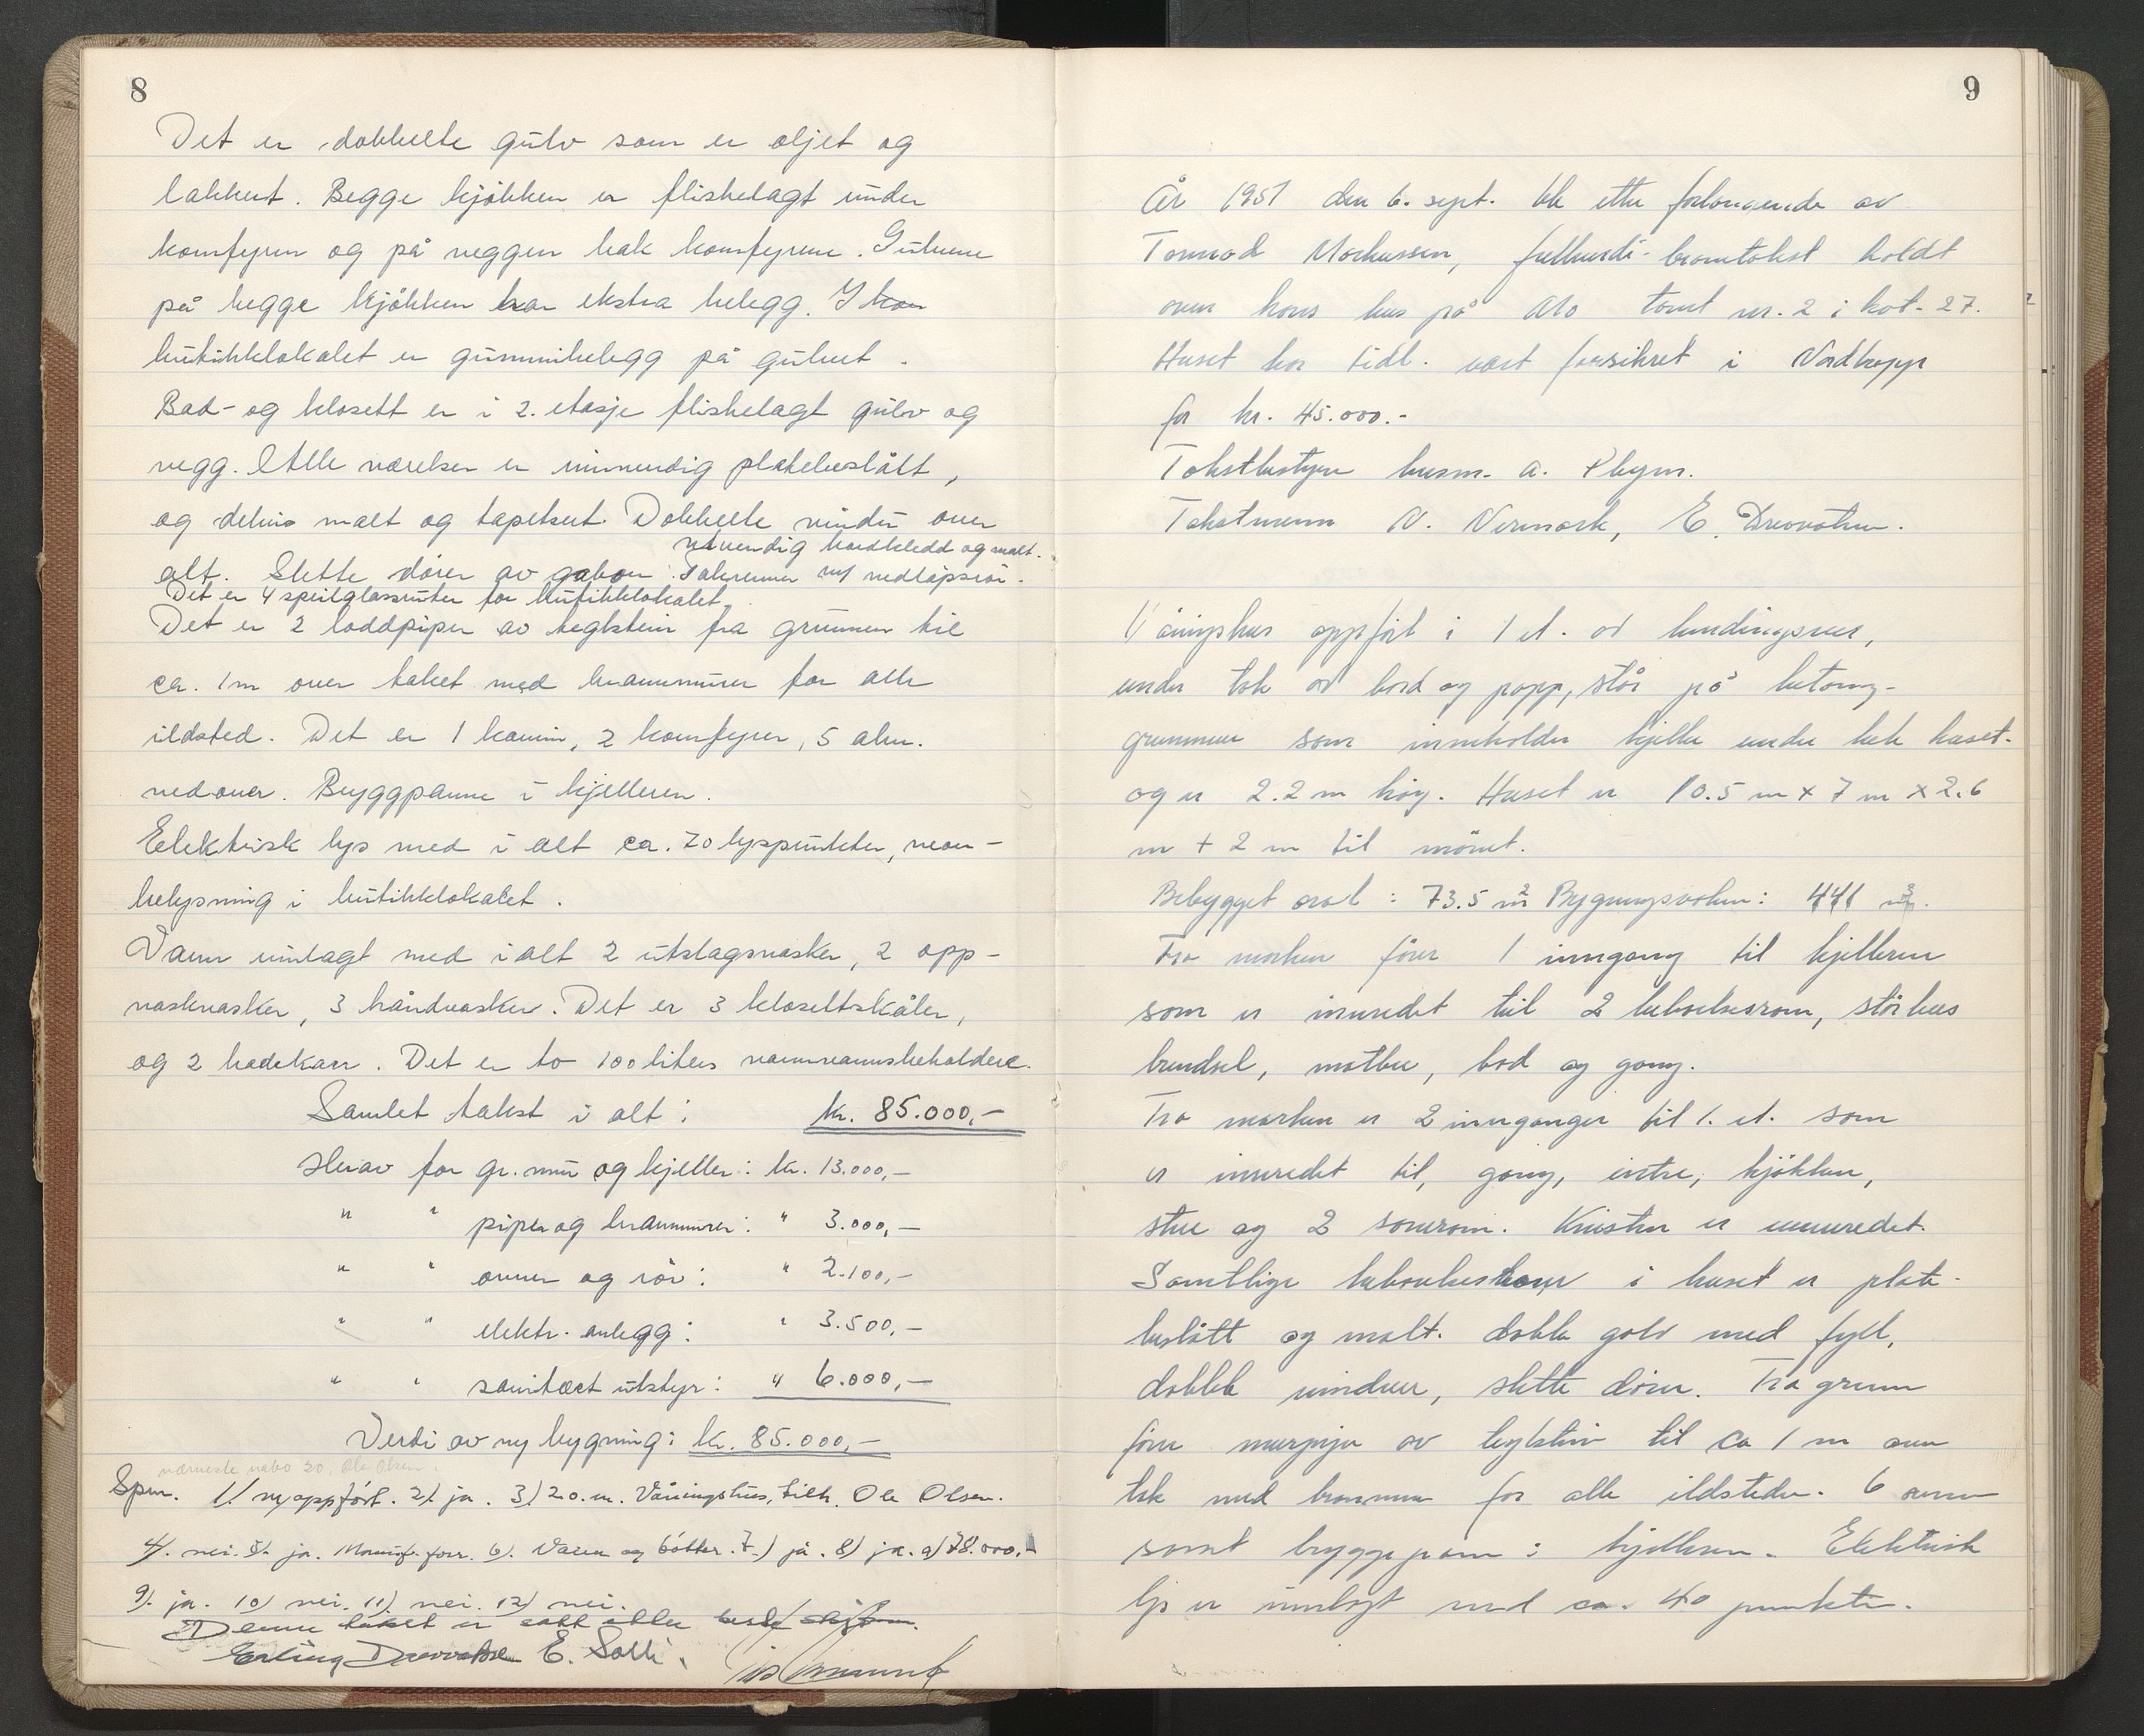 8
Det er dobbelte gulv som er oljet og
lakkert. Begge kjøkken er flisbelagt under
komfyren og på veggen bak komfyrene. Gulvene
på begge kjøkken har ekstra belegg. I
butikklokalet er gummibelegg på gulvet.
Bad- og klosett er i 2. etasje flisbelagt gulv og
vegg. Alle værelser er innvendig platebeslått,
og delvis malt og tapetsert. Dobbelte vindu over
utvendig bordkledd og malt.
alt. Slette dører av gabon. Takrenner m/ nedløpsrør.
Det er 4 speilglassruter for butikklokalet.
Det er 2 loddpiper av teglstein fra grunnen til
ca. 1m over taket med brannmurer for alle
ildsted. Det er 1 kamin, 2 komfyrer, 5 alm.
vedovner. Bryggpanne i kjelleren.
Elektrisk lys med i alt ca. 70 lyspunkter, neon-
belysning i butikklokalet.
Vann innlagt med i alt 2 utslagsvasker, 2 opp-
vaskvasker, 3 håndvasker. Det er 3 klosettskåler,
og 2 badekarr. Det er to 100 liters varmvannsbeholdere.
Samlet takst i alt: kr. 85.000,-
Herav for gr. mur og kjeller: kr. 13.000,-
" " piper og brannmurer: " 3.000,-
" " ovner og rör: " 2.100,-
" " elektr. anlegg: " 3.500,-
" " sanitært utstyr: " 6.000,-
Verdi av ny bygning: kr. 85.000,-
nærmeste nabo 20, Ole Olsen.
Spm. 1/ nyoppført. 2/ ja. 3/ 20.m. Våningshus, tilh. Ole Olsen.
4/. nei. 5/. ja. Manuf. forr. 6/. Varer og 7.) ja. 8) ja. a) 78.000,-
9). ja. 10) nei. 11) nei. 12) nei.
Denne takst er satt etter
E. Solli.
9
År 1951 den 6. sept. ble etter forlangende av
Tormod Markussen, fullverdi-branntakst holdt
over hans hus på tomt nr. 2 i kvt. 27.
Huset har tidl. vært forsikret i
for kr. 45.000.-
Takstbestyrer
Takstmenn N. E.
Våningshus oppført i 1 et. av bindingsverk,
under tak av bord og papp, står på betong-
grunnmur som inneholder kjeller under hele huset.
og er 2.2 m høy. Huset er 10.5 m x 7 m x 2.6
m + 2 m til mønet.
Bebygget areal: 73.5 m² Bygningsvolum: 441 m³.
Fra marken fører 1 inngang til kjelleren
som er innredet til 2 beboelsesrom,
brendsel, matbu, bod og gang.
Fra marken er 2 innganger til 1. et. som
er innredet til, gang, entre, kjøkken,
stue og 2 soverom. Knisten er uinnredet.
Samtlige i huset er plate-
beslått og malt. doble golv med fyll,
doble vinduer, slette dører. Fra grunn
fører murpipe av teglstein til ca 1 m over
tak med brannmur for alle ildsteder. 6 ovner
samt bryggepanne i kjelleren. Elektrisk
lys er innlagt med ca. 40 punkter.